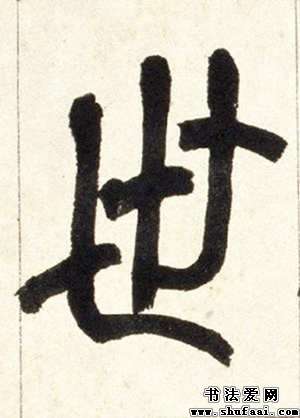 世
书法爱网
www.shufaai.com